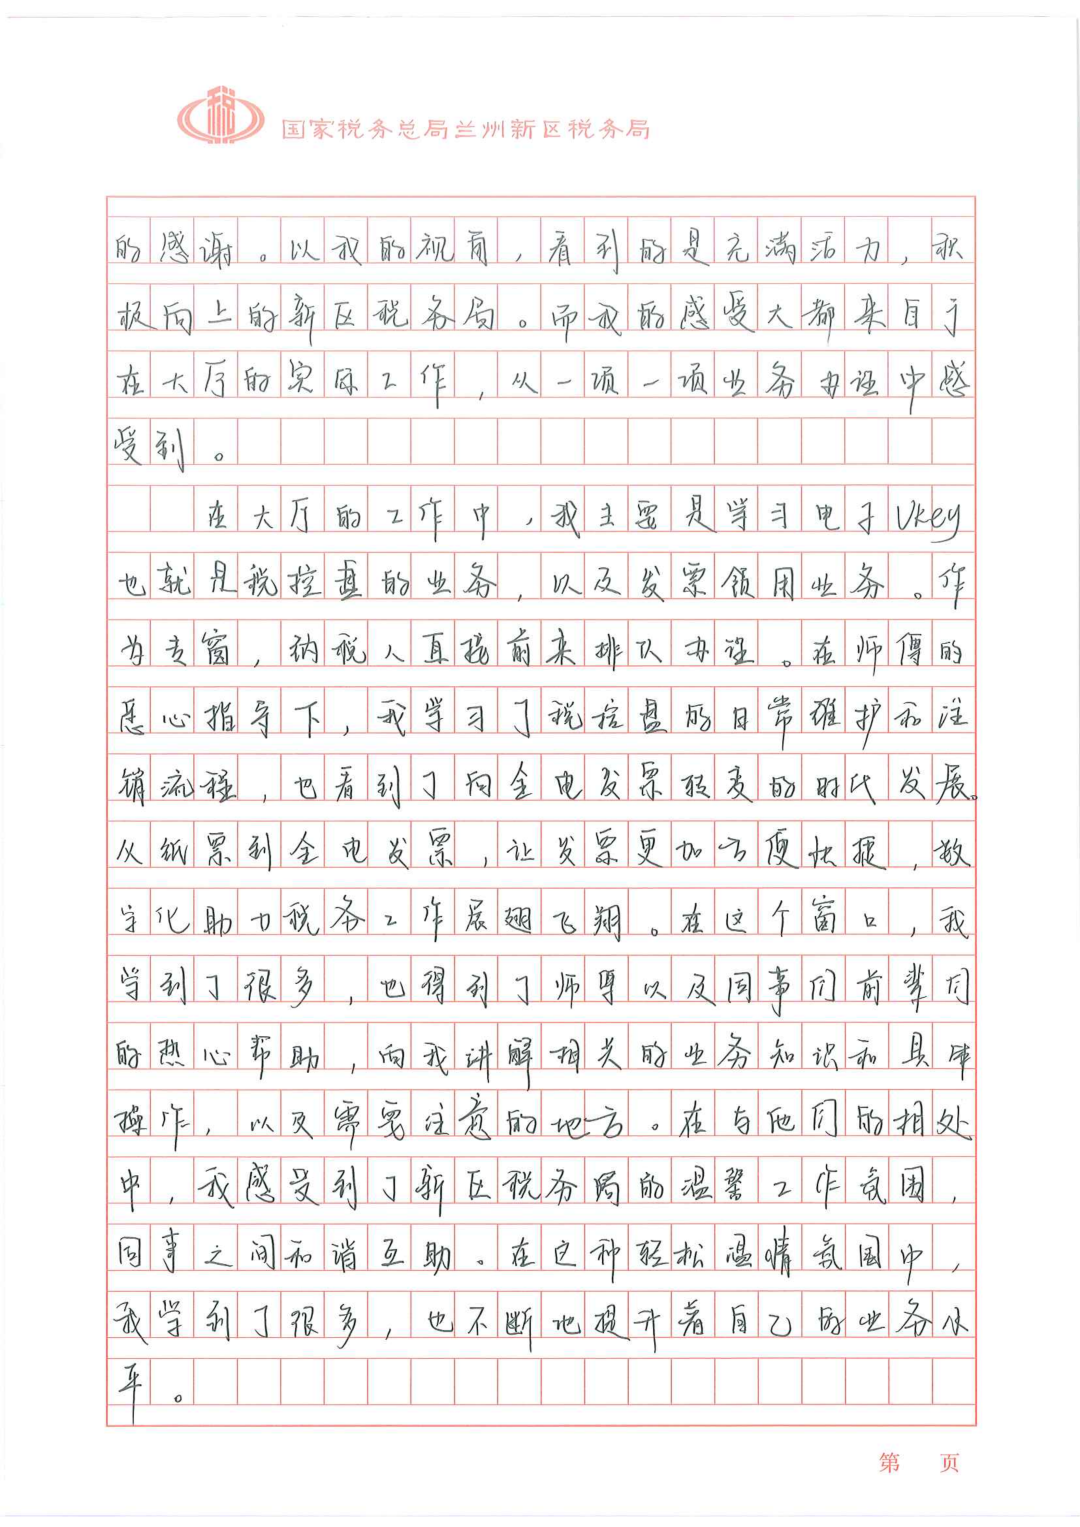 国家税务总局兰州新区税务局
的感谢。以我的视角,看到的是充满活力,积
极向上的新区税务局。而我的感受大都来自于
在大厅的实际工作,从一项一项业务办理中感
受到。
在大厅的工作中,我主要是学习电子Ukey
也就是税控盘的业务,以及发票领用业务。作
为专窗,纳税人直接前来排队办理。在师傅的
悉心指导下,我学习了税控盘的日常维护和注
销流程,也看到了向全电发票转变的时代发展。
从纸票到全电发票,让发票更加方便快捷,数
字化助力税务工作展翅飞翔。在这个窗口,我
学到了很多,也得到了师傅以及同事们前辈们
的热心帮助,向我讲解相关的业务知识和具体
操作,以及需要注意的地方。在与他们的相处
中,我感受到了新区税务局的温馨工作氛围,
同事之间和谐互助。在这种轻松温情氛围中,
我学到了很多,也不断地提升着自己的业务水
平。
第 页